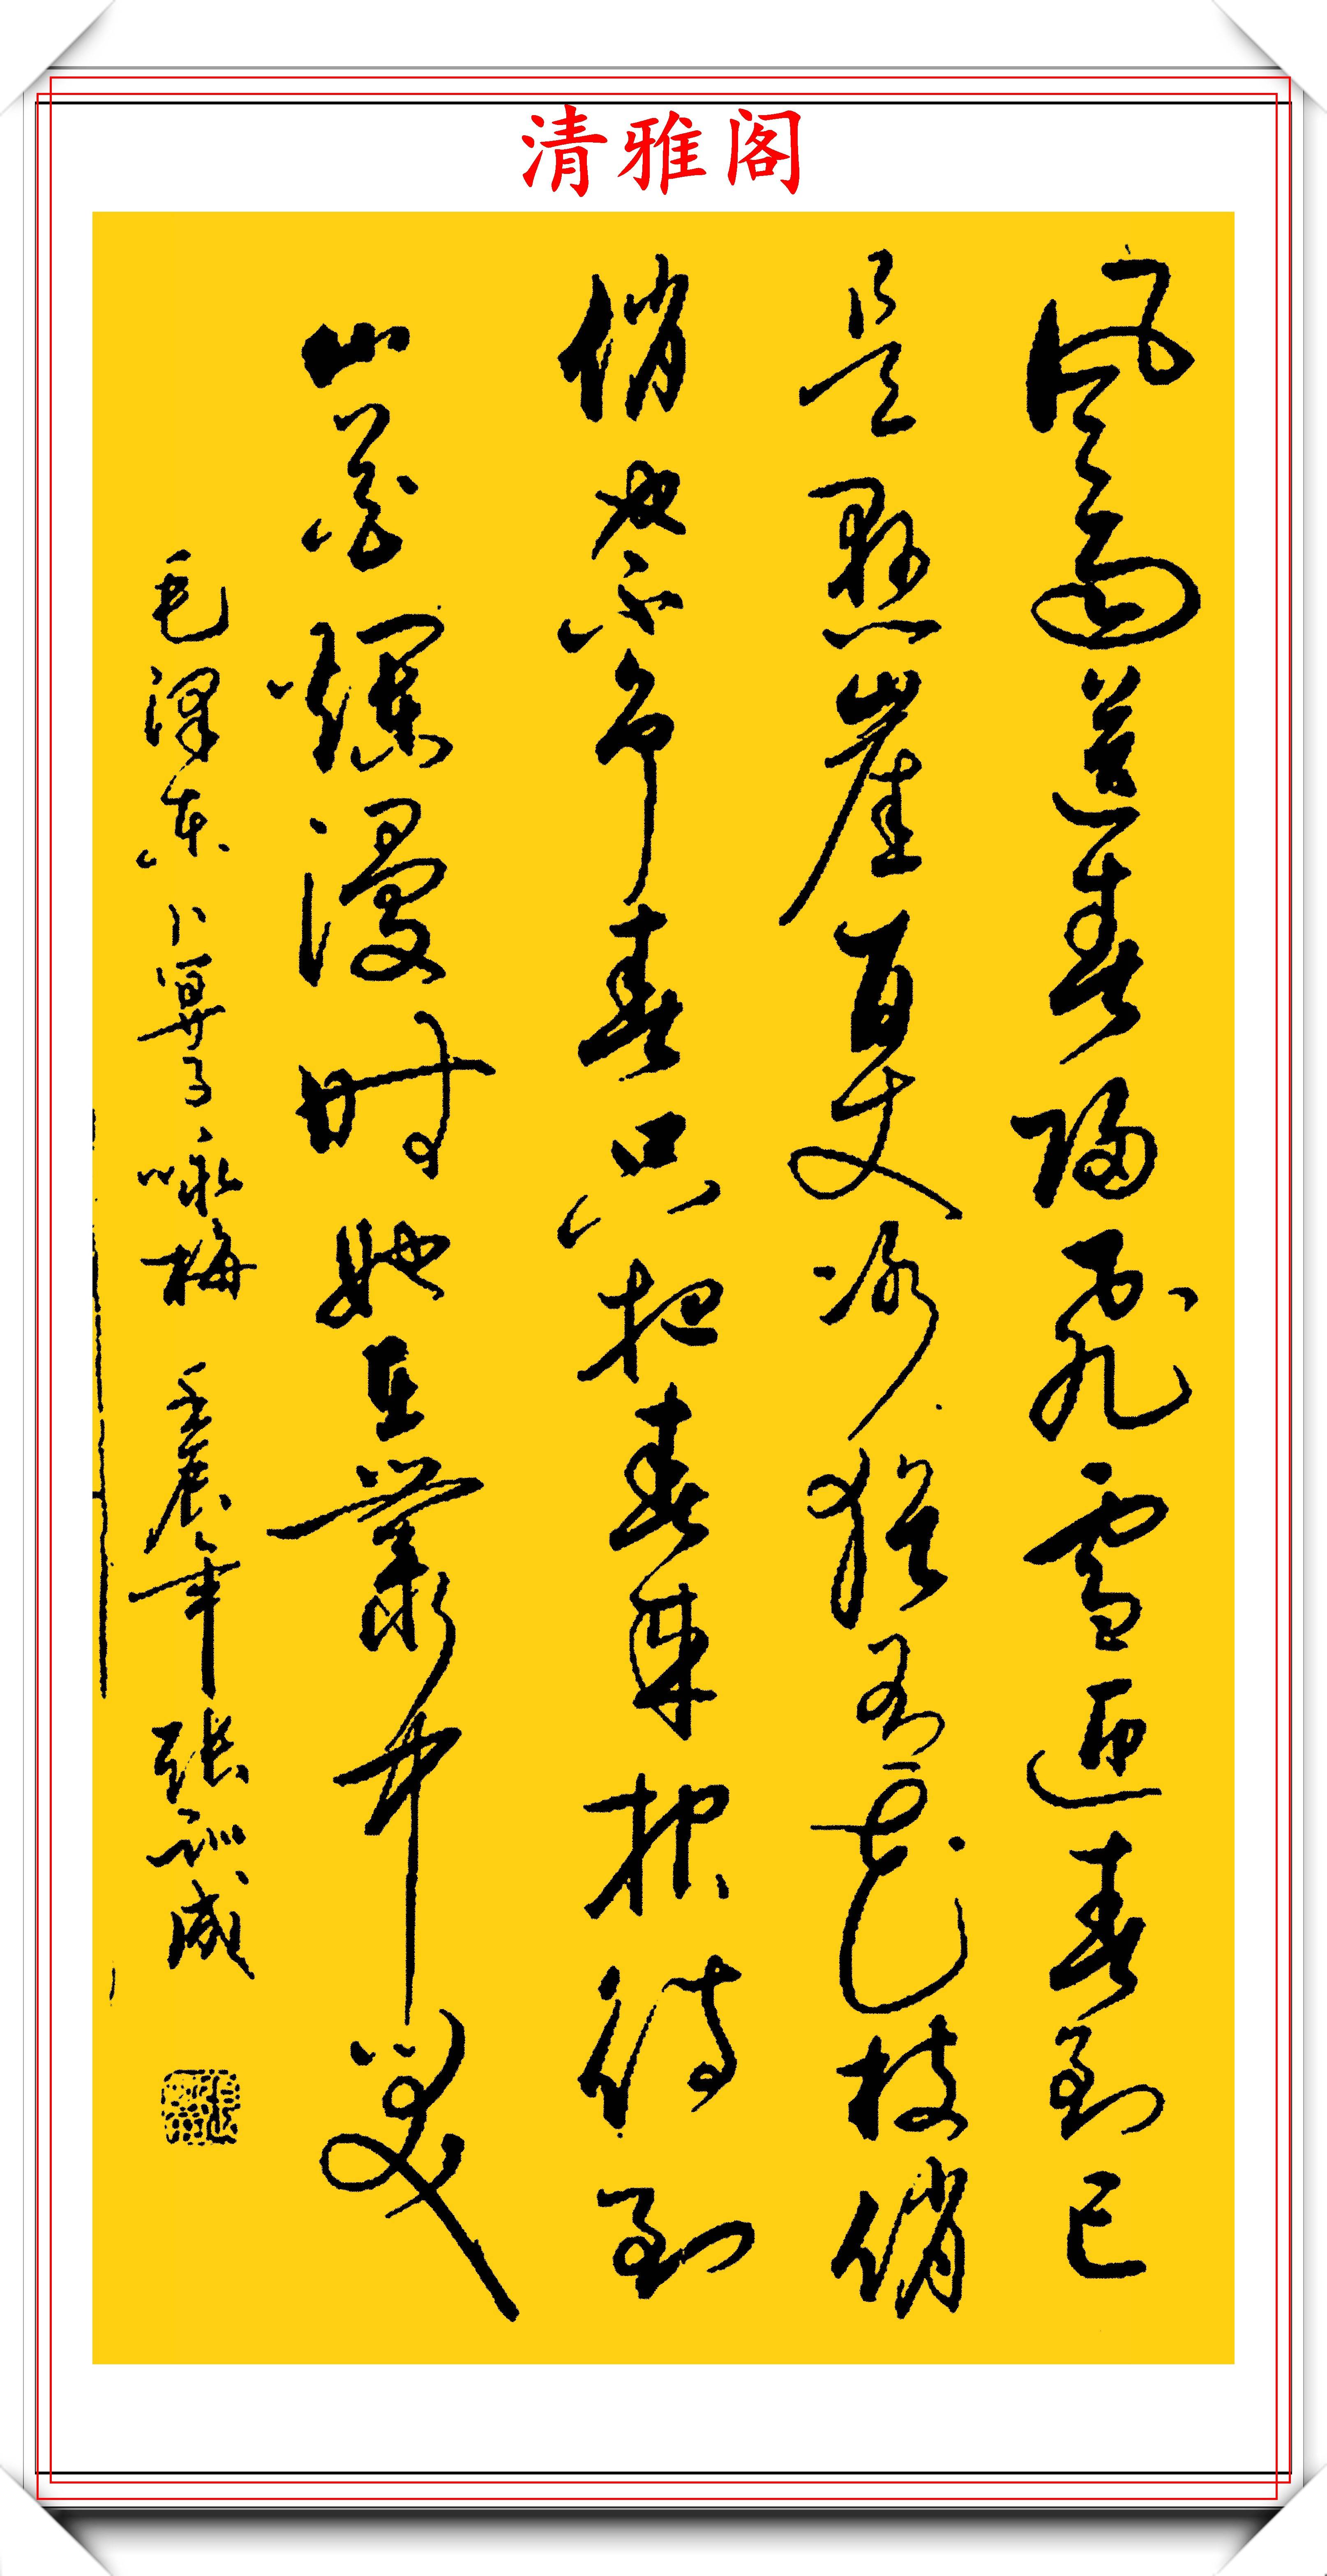 清雅阁
风雨送春归飛雪迎春到已
是懸崖百丈冰猶有花枝俏
俏也不争春只把春来报待到
山花爛漫时她在叢中笑
毛泽东卜算子咏梅 壬辰年 张训成